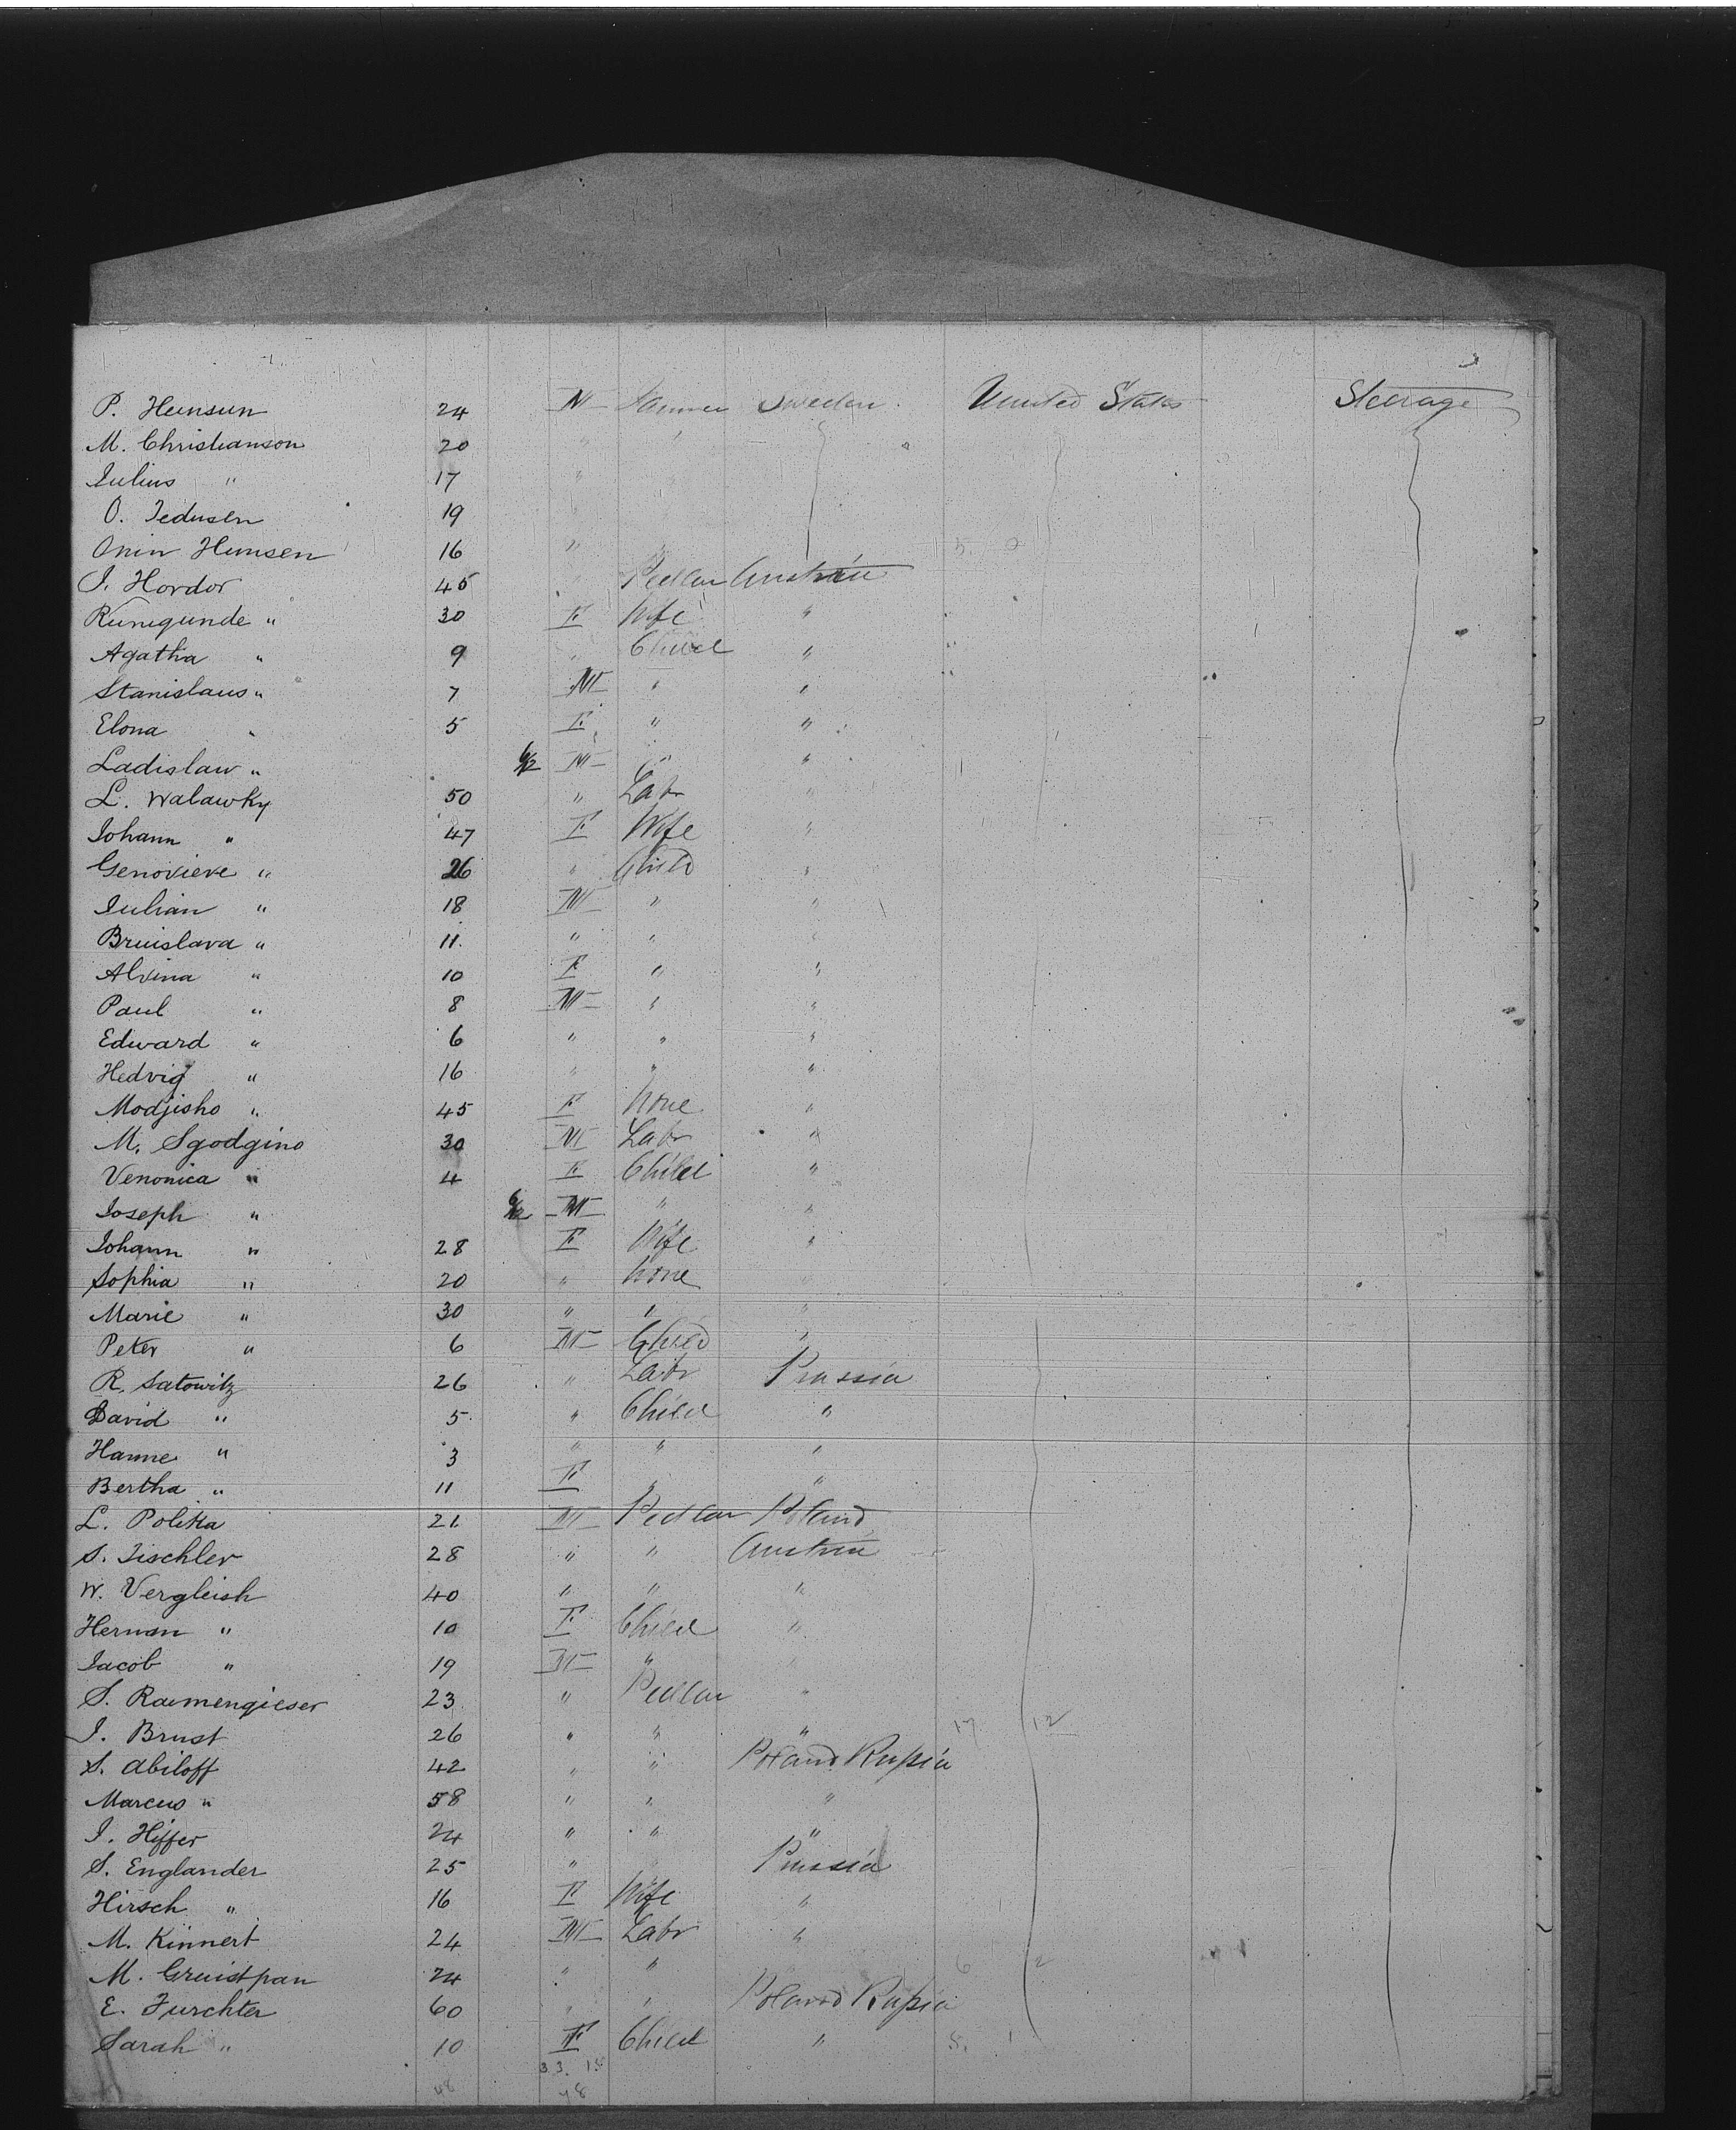 3
P. Hunsun 24 M Farmer Sweden United States Steerage
M. Christianson 20 "
Julius " 17 "
O. Tedusen 19
Onin Hunsen 16 " "
J. Hordor 45 Pedlar Austria
Kunigunde " 30 F Wife "
Agatha " 9 " Child "
Stanislaus " 7 M " "
Elona " 5 F " "
Ladislaw " 6/12 M " "
L. Walawky 50 " Labr "
Johann " 47 F Wife "
Genovieve " 26 " Child "
Julian " 18 M " "
Bruislava " 11 " " "
Alvina " 10 F " "
Paul " 8 M " "
Edward " 6 " " "
Hedvig " 16 " " "
Modjisho " 45 F None "
M. Sgodgino 30 M Labr "
Venonica " 4 F Child "
Joseph " 6/12 M " "
Johann " 28 F Wife "
Sophia " 20 " None
Marie " 30 " " "
Peter " 6 M Child "
R. Satowitz 26 " Labr Prussia
David " 5 " Child "
Hanne " 3 " " "
Bertha " 11 F " "
L. Politta 21 M Pedlar Poland
S. Tischler 28 " " Austria
W. Vergleish 40 " " "
Herman " 10 F Child "
Jacob " 19 M "
S. Raumengieser 23 " Pedlar "
J. Brust 26 " " " 17 12
S. Abiloff 42 " " Poland Russia
Marcus " 58 " " "
J. Hiffer 24 " " "
S. Englander 25 " Prussia
Hirsch " 16 F Wife "
M. Kinnert 24 M Labr "
M. Gruistpan 24 " " 6 2
E. Furchter 60 " " Poland Russia
Sarah " 10 F Child " 5. 1
33. 15
48 48